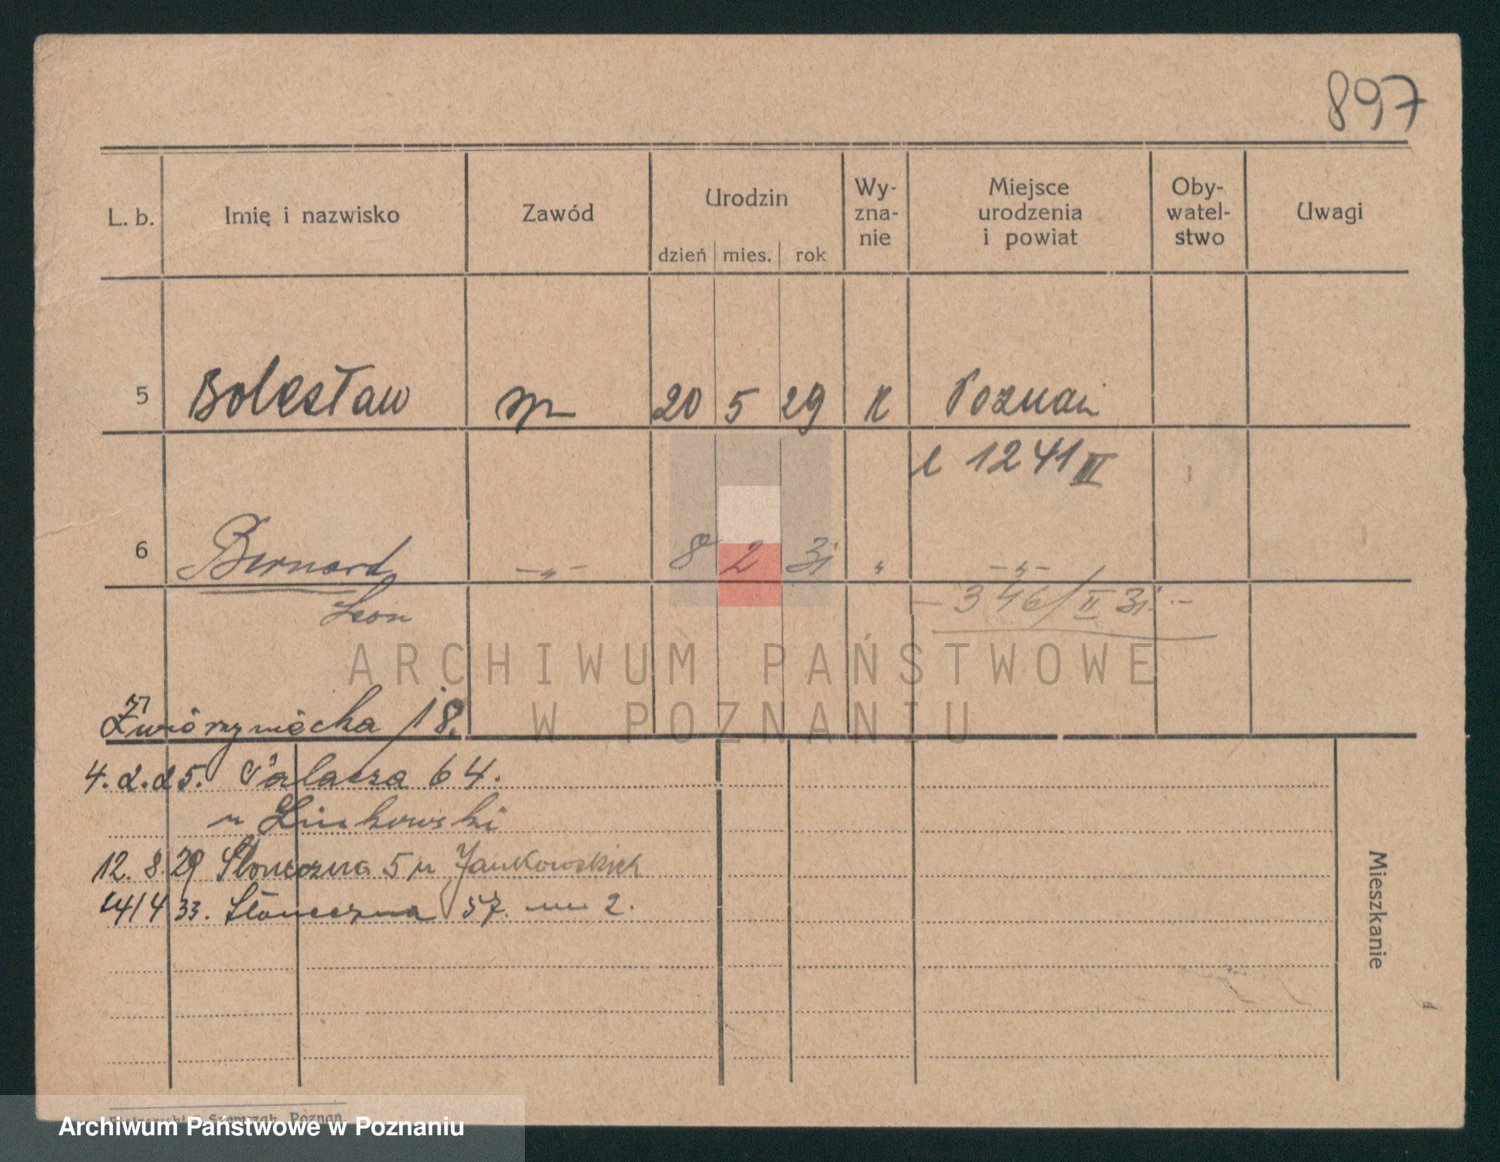 897
L. b. Imię i nazwisko Zawód Urodzin dzień mies. rok Wy-zna-nie Miejsce urodzenia i powiat Oby-watel-stwo Uwagi
5 Bolesław 20 5 29 k Poznań
1241 III
6 Bernard -„- 8 2 31 „ -„-
Leon
- 346/II 31. -
ARCHIWUM PAŃSTWOWE
W POZNANIU
Zwierzyniecka 18.
4. 2. 25. Palacza 64.
12. 8. 29 Słoneczna 5 u Jankowskich
4 33. Słoneczna 57. 2.
Mieszkanie
Poznań
Archiwum Państwowe w Poznaniu